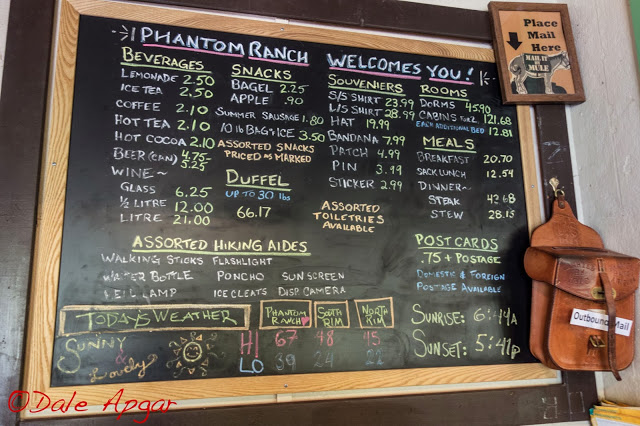 PHANTOM RANCH WELCOMES YOU!
BEVERAGES
LEMONADE 2.50
ICE TEA 2.50
COFFEE 2.10
HOT TEA 2.10
HOT COCOA 2.10
BEER (CAN) 4.75-5.25
WINE~
GLASS 6.25
1/2 LITRE 12.00
LITRE 21.00
SNACKS
BAGEL 2.25
APPLE .90
SUMMER SAUSAGE 1.80
10 lb BAG ICE 3.50
ASSORTED SNACKS
PRICED AS MARKED
DUFFEL
UP TO 30 lbs
66.17
SOUVENIERS
S/S SHIRT 23.99
L/S SHIRT 28.99
HAT 19.99
BANDANA 7.99
PATCH 4.99
PIN 3.99
STICKER 2.99
ASSORTED
TOILETRIES
AVAILABLE
ROOMS
DORMS 45.90
CABINS 121.68
EACH ADDITIONAL BED 12.81
MEALS
BREAKFAST 20.70
SACK LUNCH 12.54
DINNER~
STEAK
STEW 28.15
ASSORTED HIKING AIDES
WALKING STICKS FLASHLIGHT
WATER BOTTLE PONCHO SUNSCREEN
LAMP ICE CLEATS DISP. CAMERA
POSTCARDS
.75 + POSTAGE
DOMESTIC & FOREIGN
POSTAGE AVAILABLE
TODAY'S WEATHER
PHANTOM RANCH
SOUTH RIM
NORTH RIM
SUNNY & Lovely
HI 67 48 45
LO 39
SUNRISE: 6:44A
SUNSET: 5:41P
Place
Mail
Here
MAIL BY
MULE
Outbound Mail
©Dale Apgar